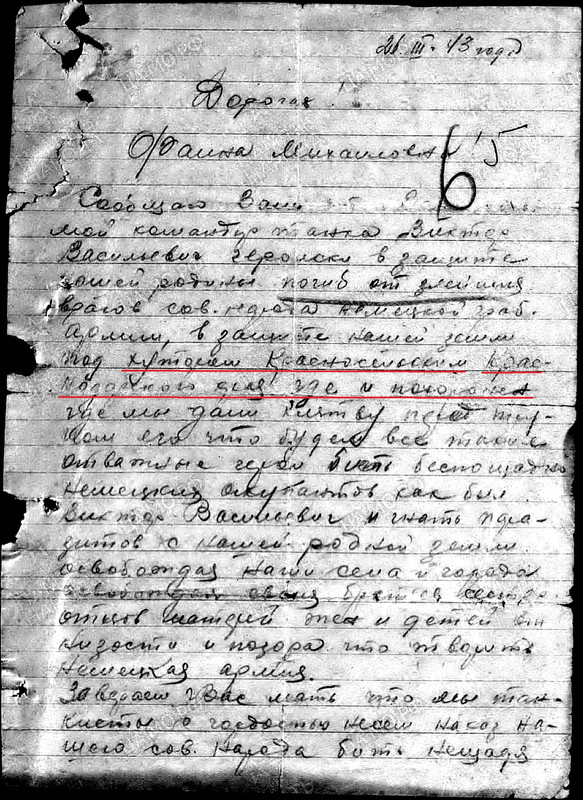 26. III. 43 года
Дорогая!
Фаина Михаиловна
65
Сообщаю Вам
мой командир танка Виктор
Васильевич геройски в защите
нашей родины погиб от злейших
врагов сов. народа немецкой граб.
армии, в защите нашей земли
под хутором Красносельским Крас-
нодарского края где и похоронен
где мы дали клятву пред тру-
пом его что будем все такие
отважные герои бить беспощадно
немецких окупантов как был
Виктор Васильевич и гнать пара-
зитов с нашей родной земли
освобождая наши села и города
освобождая своих братев сестер
отцов матерей жен и детей от
низости и позора что творить
немецкая армия.
Заверяем Вас мать что мы тан-
кисты с гордостью несем наказ на-
шего сов. народа бить нещадя